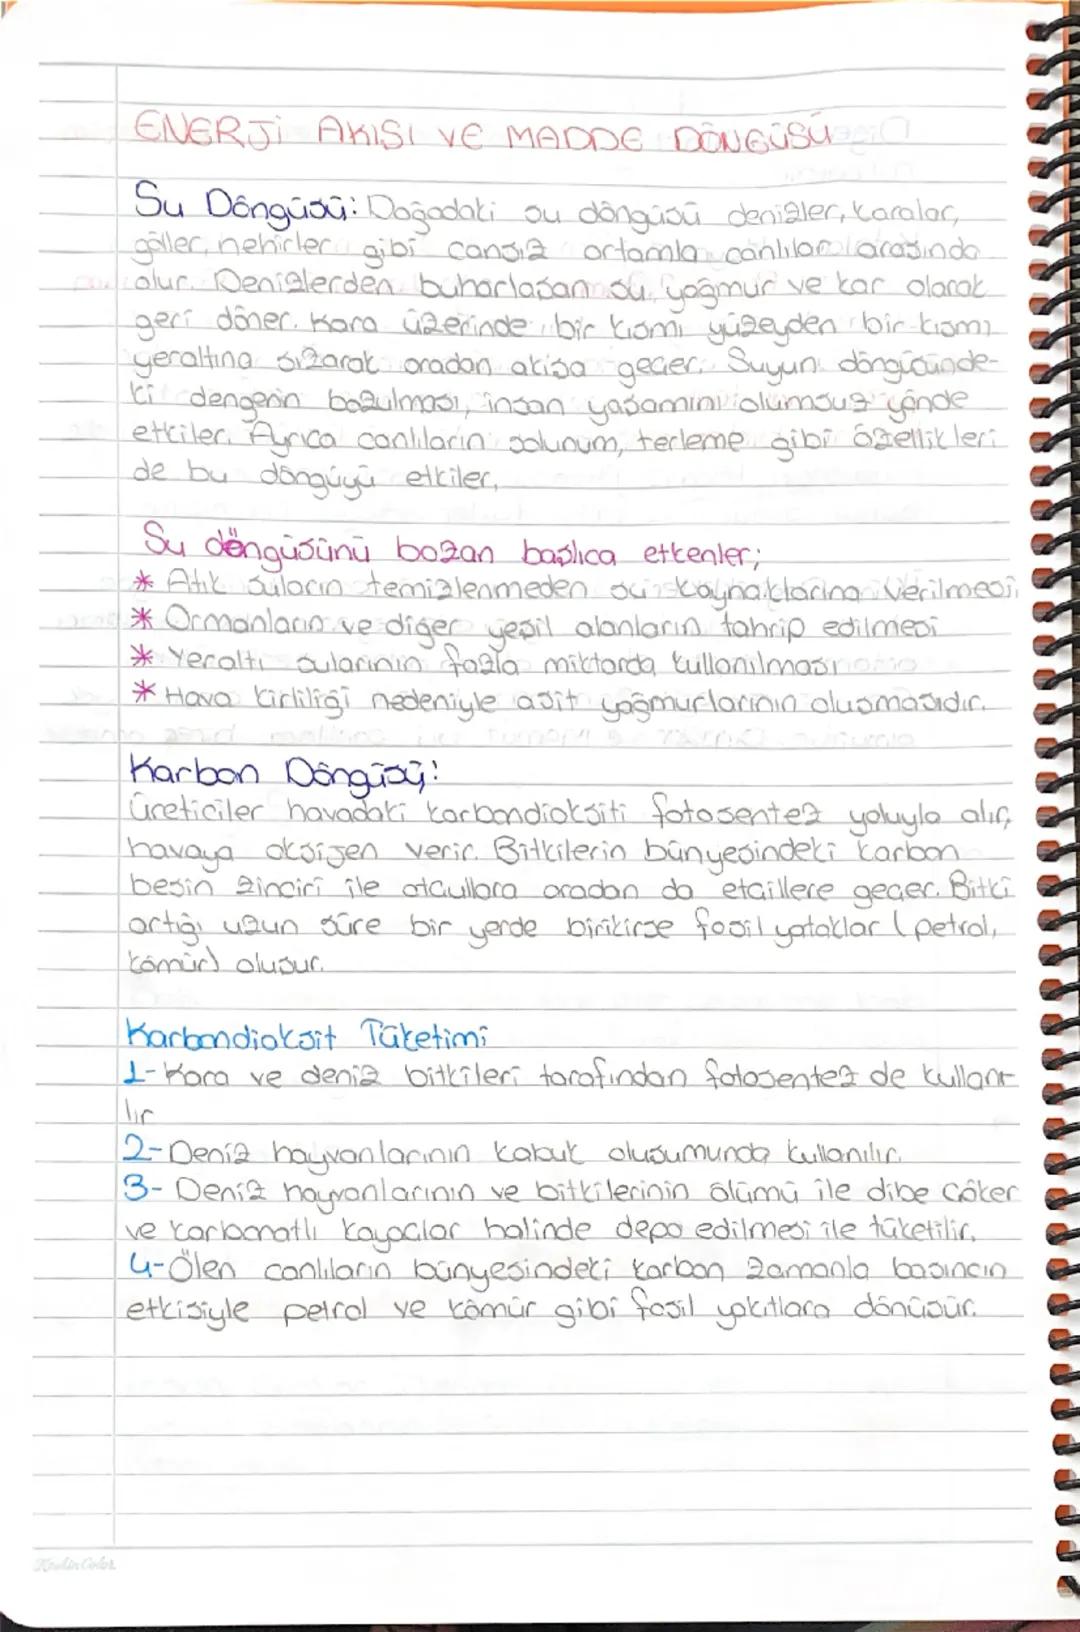 ENERJİ AKISI VE MADDE DÖNGÜSÜ
Su Döngüsü: Doğadaki su döngüsü denizler, karalar,
göller, nehirler gibi cansız ortamla canlılar arasında
olur. Denizlerden buharlaşan su, yağmur ve kar olarak
geri döner. Kara üzerinde bir kısmı yüzeyden bir kısmı
yeraltına sızarak oradan akisa gecer. Suyun döngüsünde-
ki dengenin bozulması, insan yasamını olumsuz yönde
etkiler. Ayrıca canlıların solunum, terleme gibi özellikleri
de bu döngüyü etkiler.
Su döngüsünü bozan başlıca etkenler;
* Atık suların temizlenmeden su kaynaklarına verilmesi
* Ormanların ve diğer yeşil alanların tahrip edilmesi
* Yeraltı sularının fazla miktarda kullanılması
* Hava kirliliği nedeniyle asit yağmurlarının olusmasıdır.
Karbon Döngüsü:
Üreticiler havadaki karbondioksiti fotosentez yoluyla alır,
havaya oksijen verir. Bitkilerin bünyesindeki karbon
besin zinciri ile otcullara oradan da etcillere gecer. Bitki
artığı uzun süre bir yerde birikirse fosil yataklar (petrol,
kömür) olusur.
Karbondioksit Tüketimi
1-Kara ve deniz bitkileri tarafından fotosentez de kullanı-
lır
2-Deniz hayvanlarının kabuk olusumunda kullanılır.
3- Deniz hayvanlarının ve bitkilerinin ölümü ile dibe cöker
ve karbonatlı kayaclar halinde depo edilmesi ile tüketilir.
4-Ölen canlıların bünyesindeki karbon zamanla basıncın
etkisiyle petrol ve kömür gibi fosil yakıtlara dönüsür.
Keskin Color